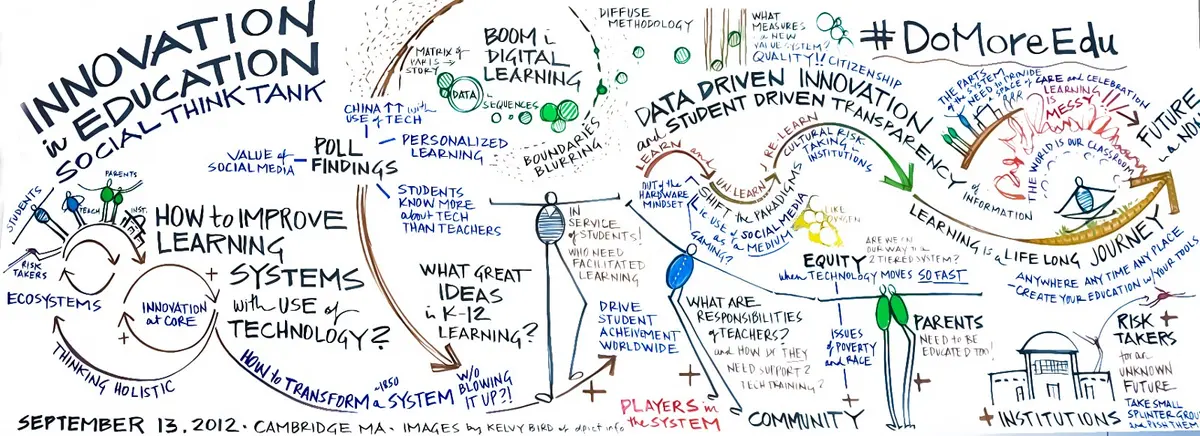 INNOVATION
in EDUCATION
SOCIAL THINK TANK
STUDENTS
PARENTS
TEACH
INST.
RISK
TAKERS
ECOSYSTEMS
INNOVATION
at CORE
THINKING HOLISTIC
HOW to IMPROVE
LEARNING
SYSTEMS
with USE of
TECHNOLOGY?
HOW to TRANSFORM
~1850
a SYSTEM
W/O
BLOWING
IT UP?!
SEPTEMBER 13.2012 · CAMBRIDGE MA · IMAGES by KELVY BIRD of dpict info
VALUE of
SOCIAL MEDIA
POLL
FINDINGS
CHINA ↑↑ with
USE of TECH
PERSONALIZED
LEARNING
STUDENTS
KNOW MORE
about TECH
THAN TEACHERS
MATRIX of
PARTS →
STORY
BOOM in
DIGITAL
LEARNING
DATA
in SEQUENCES
BOUNDARIES
BLURRING
DIFFUSE
METHODOLOGY
WHAT GREAT
IDEAS
in K-12
LEARNING?
IN
SERVICE
of STUDENTS!
WHO NEED
FACILITATED
LEARNING
DRIVE
STUDENT
ACHIEVMENT
WORLDWIDE
PLAYERS in
the SYSTEM
WHAT
MEASURES
in a NEW
VALUE SYSTEM?
QUALITY!! CITIZENSHIP
#DoMoreEdu
DATA DRIVEN INNOVATION
and STUDENT DRIVEN TRANSPARENCY
of
INFORMATION
LEARN and
UN LEARN
RE-LEARN
CULTURAL RISK
TAKING in
INSTITUTIONS
OUT of the
HARDWARE
MINDSET
SHIFT the PARADIGMS
ie USE of SOCIAL MEDIA
as a MEDIUM
GAMING?
LIKE
OXYGEN
EQUITY
when TECHNOLOGY MOVES SO FAST
ARE WE ON
OUR WAY to a
2 TIERED SYSTEM?
WHAT ARE
RESPONSIBILITIES
of TEACHERS?
and HOW do THEY
NEED SUPPORT?
TECH TRAINING?
ISSUES
of POVERTY
and RACE
COMMUNITY
PARENTS
NEED to BE
EDUCATED TOO!
THE PARTS
of the SYSTEM
NEED to PROVIDE
a SPACE of
CARE and CELEBRATION
LEARNING
IS MESSY
THE WORLD IS OUR CLASSROOM
FUTURE
LEARNING IS a LIFE LONG JOURNEY
ANYWHERE ANY TIME ANY PLACE
–CREATE YOUR EDUCATION w/YOUR TOOLS
INSTITUTIONS
RISK
TAKERS
for an
UNKNOWN
FUTURE
TAKE SMALL
SPLINTER
and PUSH THEM